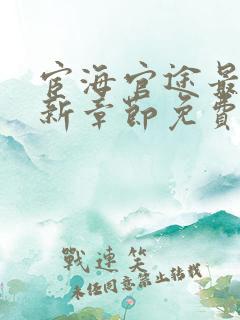 宦海官途最
新章節免費
戰連笑
未经同意禁止转载